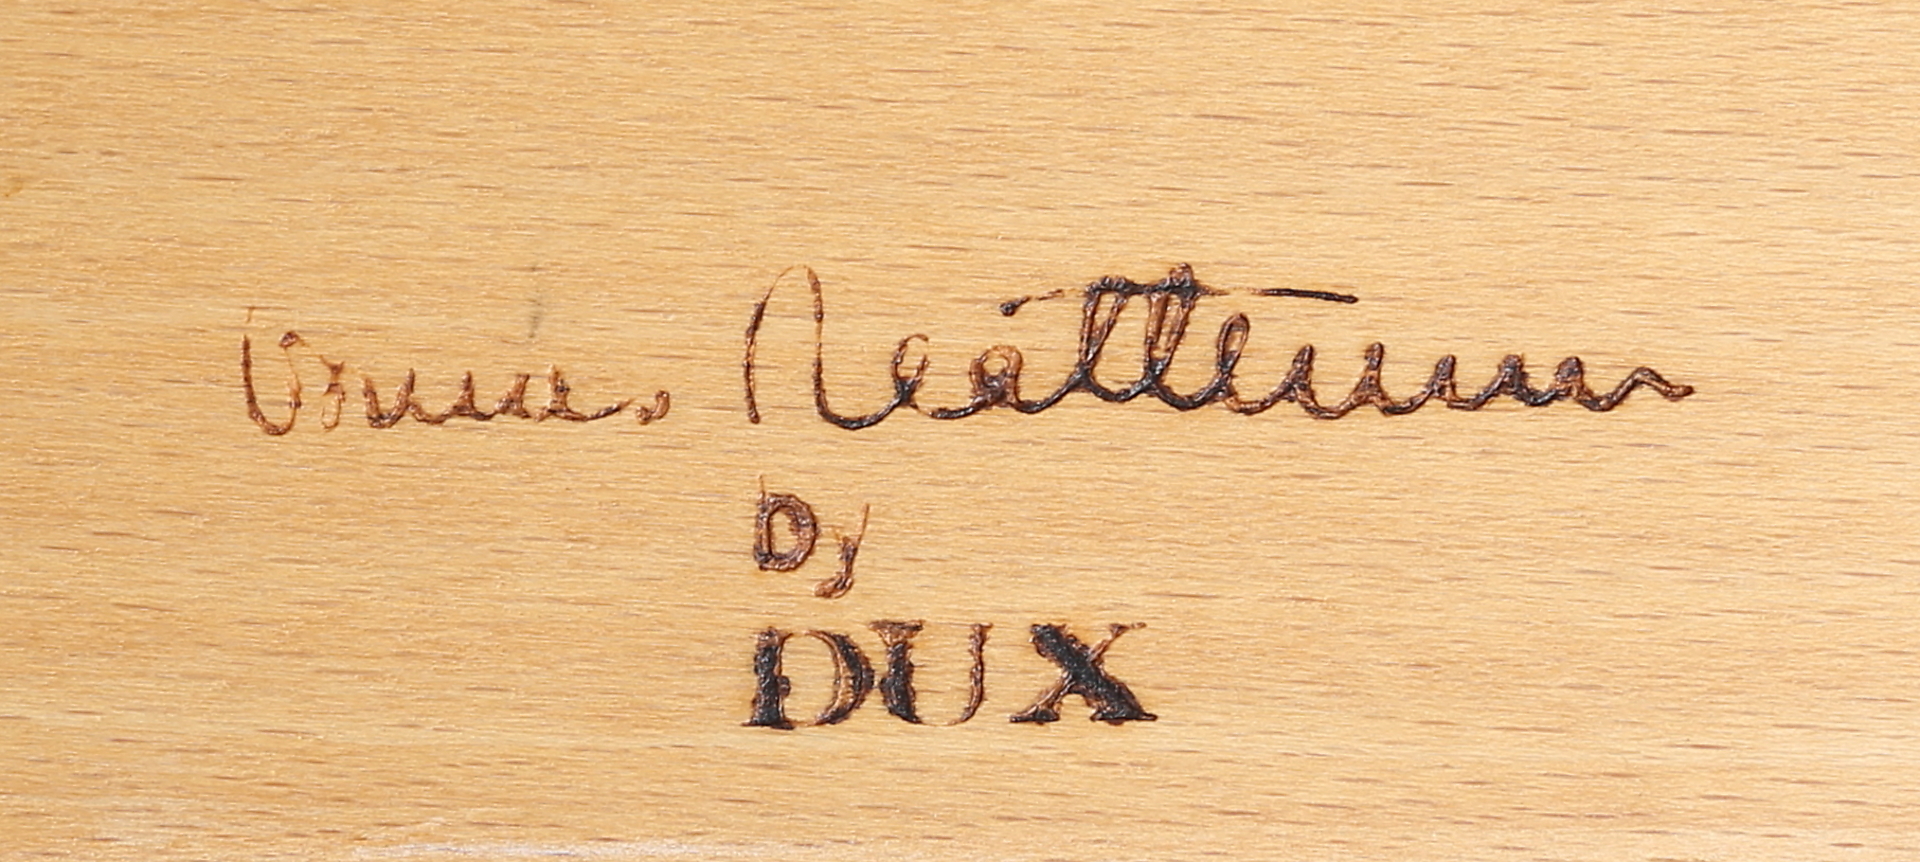 Bruno Mathsson
By
DUX